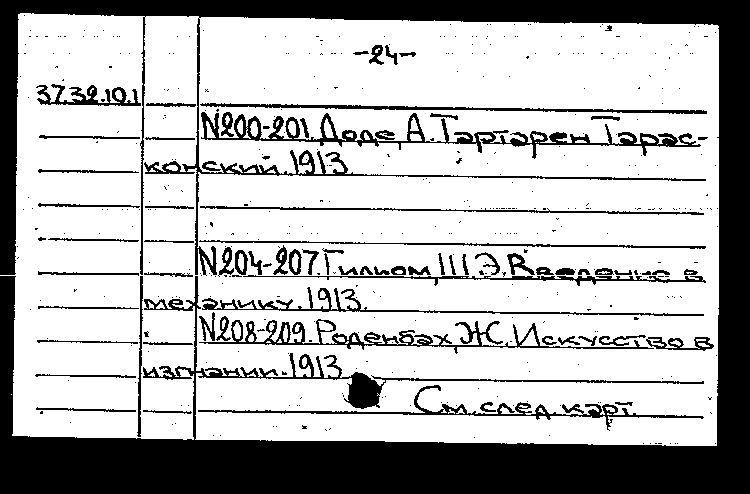 -24-
37.32.10.1
N200-201. Доде, А. Тартарен Тарас-
конский. 1913.
N204-207. Гильом, Ш.Э. Введение в
механику. 1913.
N208-209. Роденбах, Ж. Искусство в
изгнании. 1913
См. след. карт.